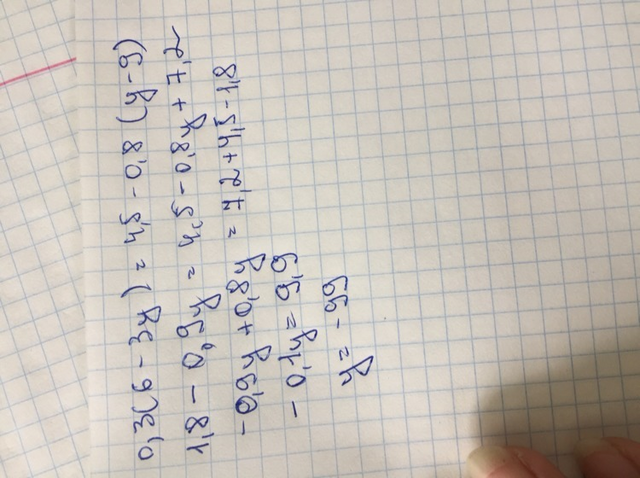 0,3(6 - 3y) = 4,5 - 0,8 (y - 9)
1,8 - 0,9y = 4,5 - 0,8y + 7,2
-0,9y + 0,8y = 7,2 + 4,5 - 1,8
- 0,1y = 9,9
y = - 99